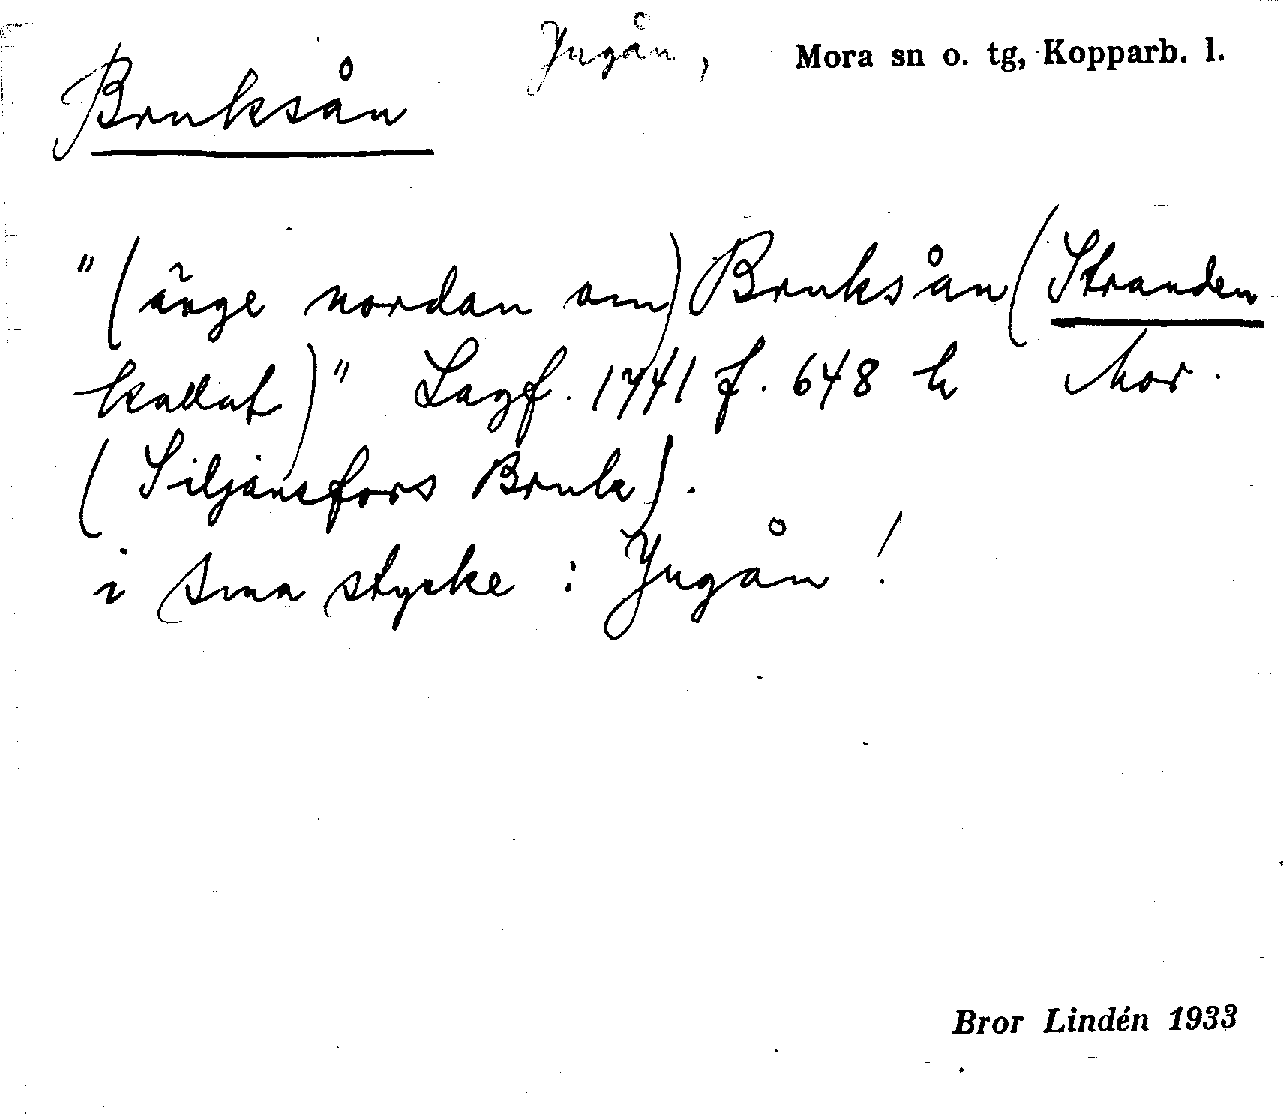 Yngån, Mora sn o. tg, Kopparb. l.
Bruksån
"(änge nordan om) Bruksån (Stranden
kallat)" Lagf. 1741 f. 648 h Mor.
(Siljansfors Bruk).
i sma stycke : Yngån!
Bror Lindén 1933